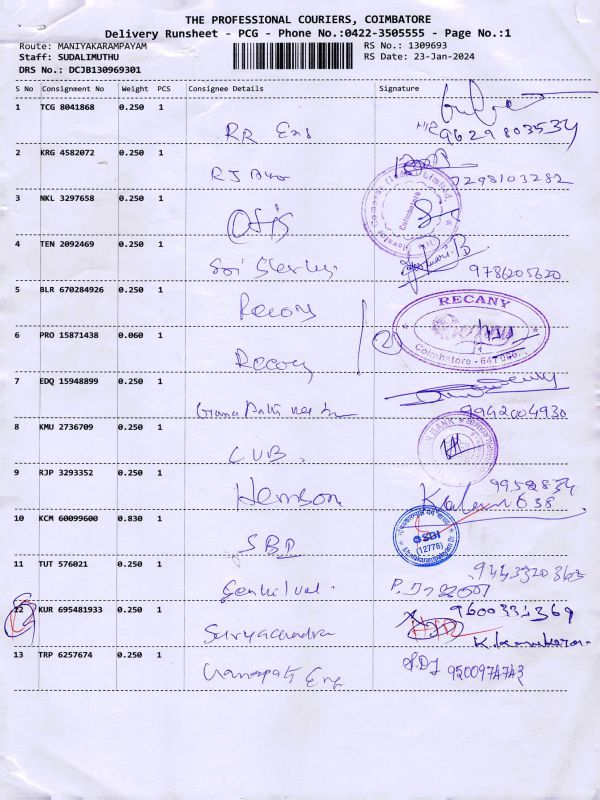 THE PROFESSIONAL COURIERS, COIMBATORE
Delivery Runsheet - PCG - Phone No.:0422-3505555 - Page No.:1
Route: MANIYAKARAMPAYAM RS No.: 1309693
Staff: SUDALIMUTHU RS Date: 23-Jan-2024
DRS No.: DCJB130969301
S No Consignment No Weight PCS Consignee Details Signature
1 TCG 8041868 0.250 1
RR Ens 9629803534
2 KRG 4582072 0.250 1
RJ Auto 7298103282
3 NKL 3297658 0.250 1
OSIS
Coimbatore
4 TEN 2092469 0.250 1
Sri 9786205620
5 BLR 670284926 0.250 1
Recony
RECANY
6 PRO 15871438 0.060 1
Recony
Coimbatore - 641 046.
7 EDQ 15948899 0.250 1
9942004930
8 KMU 2736709 0.250 1
CUB. BANK
9 RJP 3293352 0.250 1
Hemson
10 KCM 60099600 0.830 1
SBI
SBI
(12776)
11 TUT 576021 0.250 1
Senthilval.
12 KUR 695481933 0.250 1
9600334369
Suryachandra
13 TRP 6257674 0.250 1
Ganapati Eng